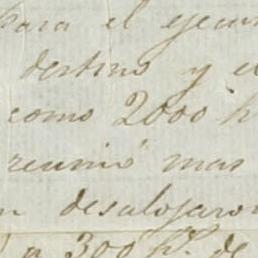 para el ejecu
destino y el
como 2000 h
reunió mas
n desalojaron
a 300 hs. de